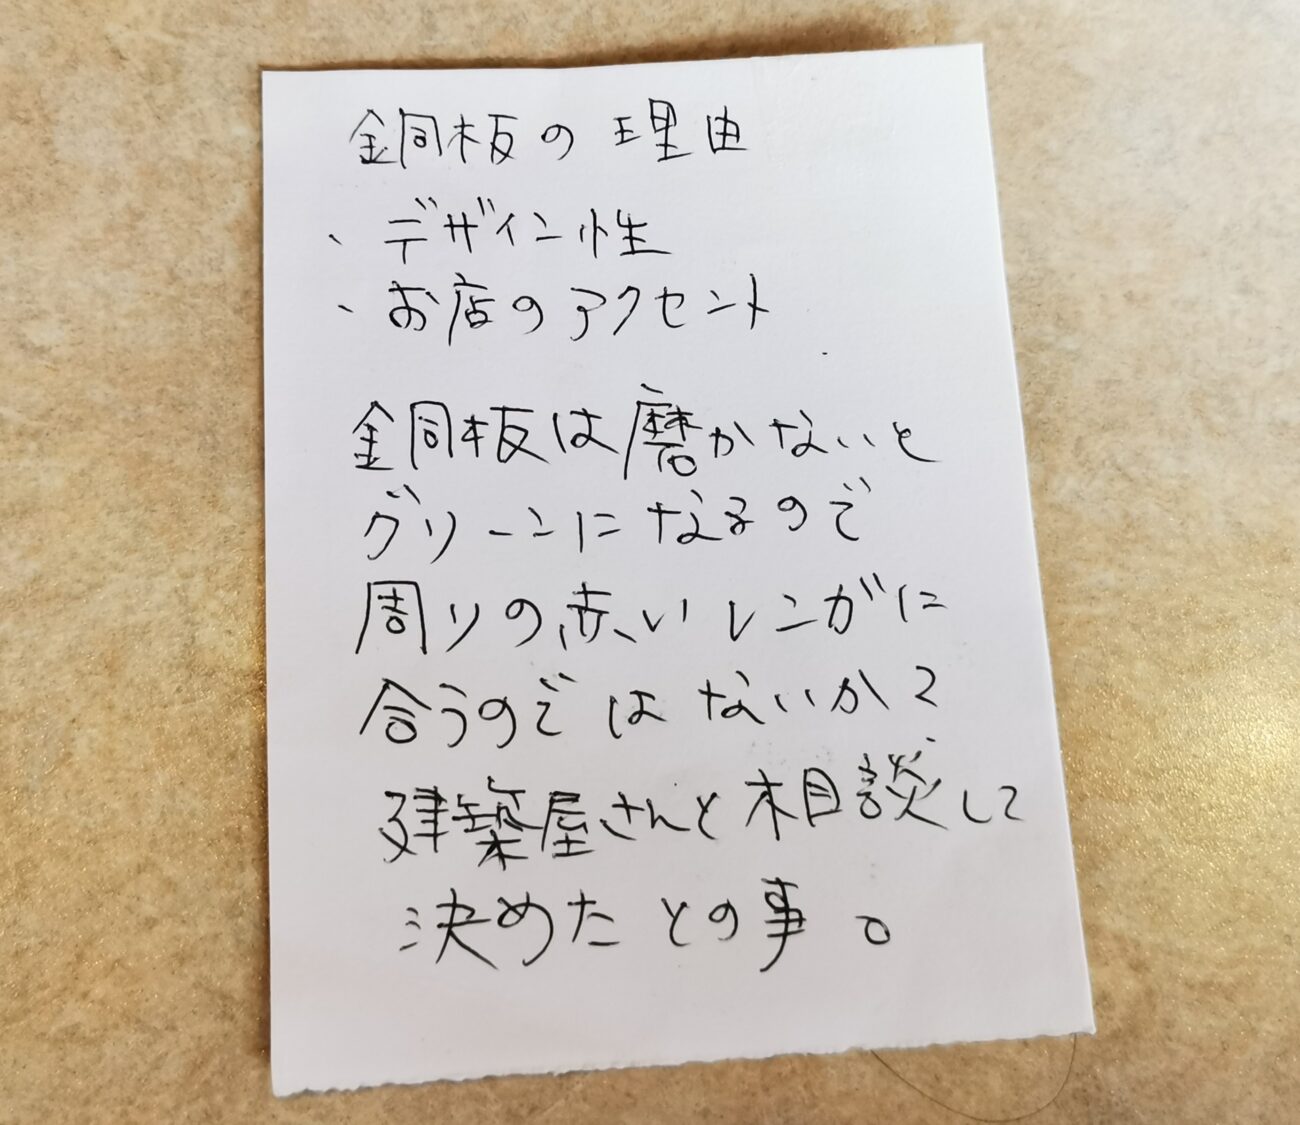 銅板の理由
・デザイン性
・お店のアクセント
銅板は磨かないと
グリーンになるので
周りの赤いレンガに
合うのではないか?
建築屋さんと相談して
決めたとの事。